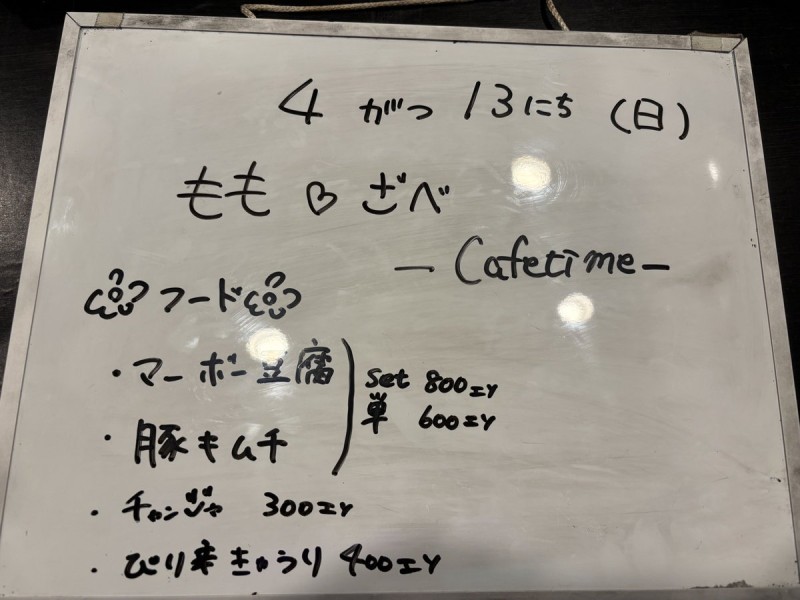 4 がつ 13にち (日)
もも♡ざべ
— Cafetime —
フード
・マーボー豆腐
・豚キムチ
set 800エソ
単 600エソ
・チャンジャ 300エソ
・ぴり辛きゅうり 400エソ